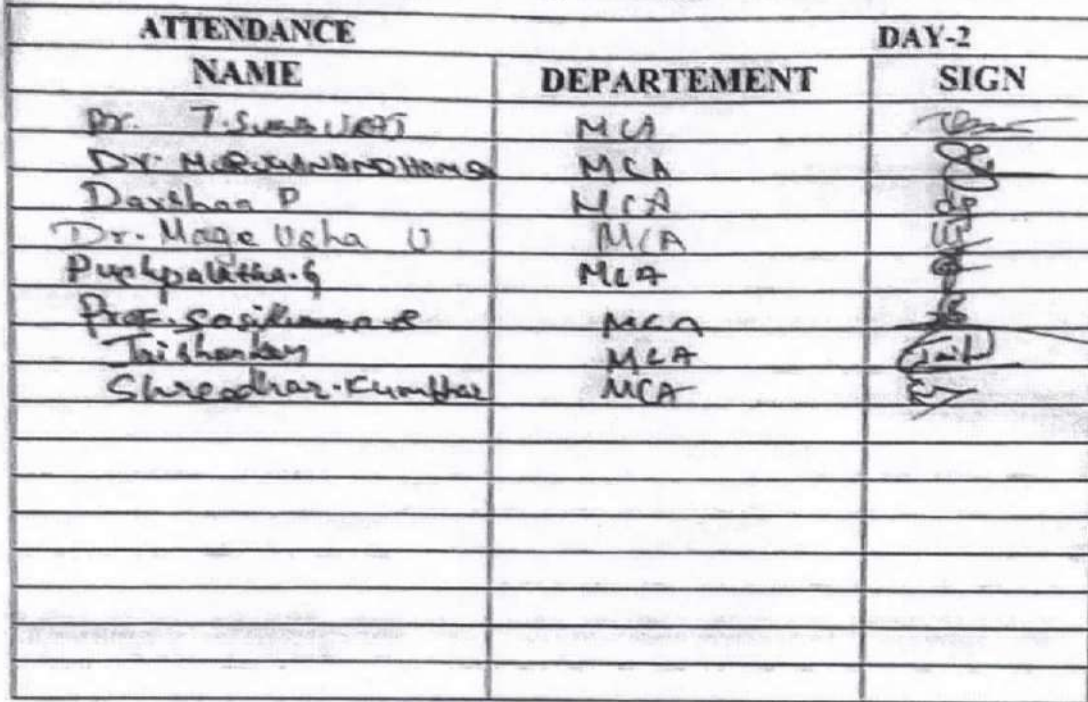 ATTENDANCE DAY-2
NAME DEPARTEMENT SIGN
Dr. MCA
Dr. MCA
Darshan P MCA
Dr. Mage Usha U MCA
Pushpalatha.G MCA
Prof. Sasikumar MCA
Jaishankar MCA
Shreedhar.Kumbhar MCA